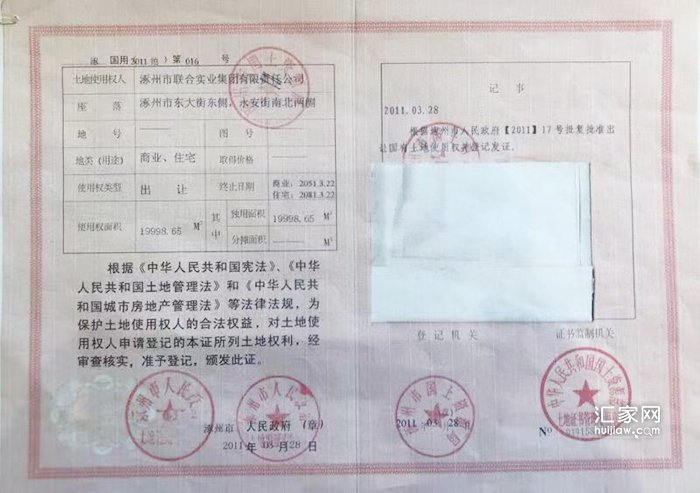 涿 国用(2011第)第016 号
土地使用权人 涿州市联合实业集团有限责任公司
座 落 涿州市东大街东侧、永安街南北两侧
地 号 图 号
地类(用途) 商业、住宅 取得价格
使用权类型 出 让 终止日期 商业:2051.3.22
住宅:2081.3.22
使用权面积 19998.65 M² 其中 独用面积 19998.65 M²
分摊面积 M²
根据《中华人民共和国宪法》、《中华
人民共和国土地管理法》和《中华人民共
和国城市房地产管理法》等法律法规,为
保护土地使用权人的合法权益,对土地使
用权人申请登记的本证所列土地权利,经
审查核实,准予登记,颁发此证。
涿州市 人民政府 (章)
2011年 03 月 28 日
记 事
2011.03.28
根据涿州市人民政府【2011】17号批复批准出
让国有土地使用权并登记发证.
登记机关 证书监制机关
涿州市国土资源局
2011 03 28
中华人民共和国国土资源部
土地证书管理
Nº
汇家网
huijlaw.com